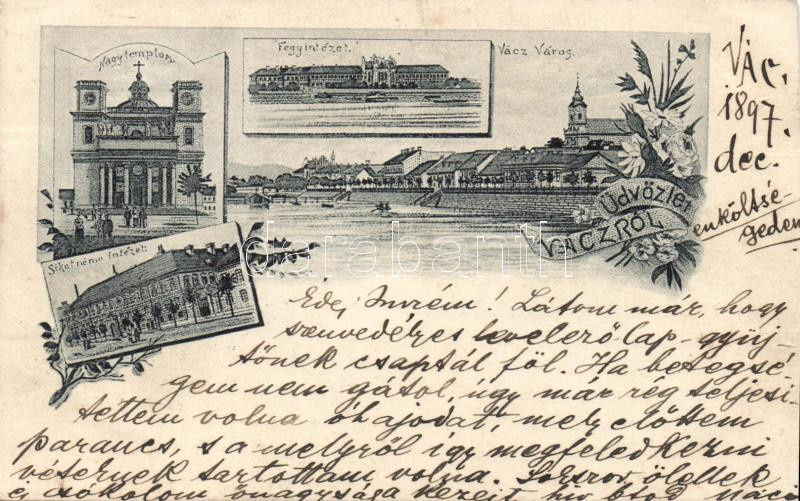 Nagytemplom
Fegyintézet.
Vácz Város.
Siketnéma intézet.
Üdvözlet
VÁCZRÓL
darabanth
VÁC,
1897.
dec.
enköltsé-
gedem
Ede, Imrém! Látom már, hogy
szenvedélyes levelező lap-gyüj-
tőnek csaptál föl. Ha betegsé-
gem nem gátol, úgy már rég teljesi-
tettem volna óhajodat, mely előttem
parancs, s a melyről így megfeledkezni
véternek tartottam volna. ölellek
s csókolom önagysága kezeit hiv